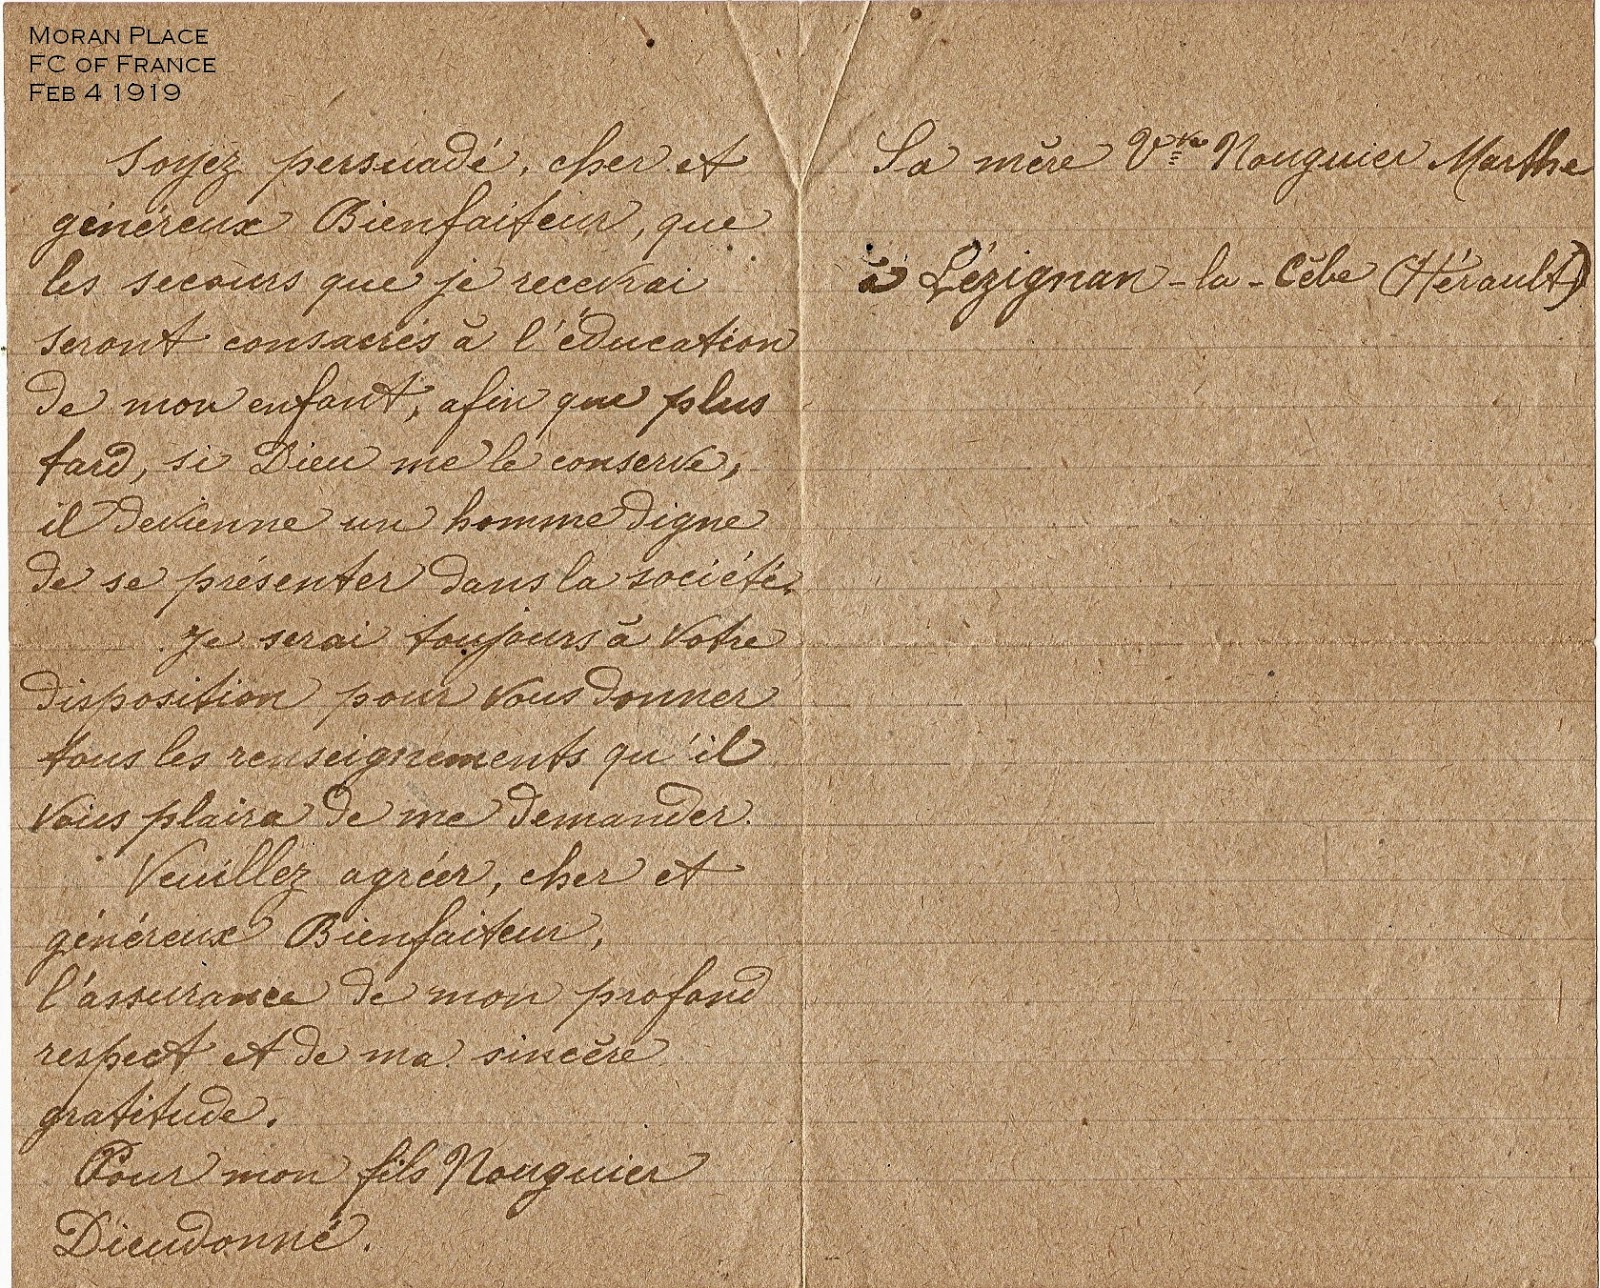 MORAN PLACE
FC OF FRANCE
FEB 4 1919
Soyez persuadé, cher et
généreux Bienfaiteur, que
les secours que je recevrai
seront consacrés à l'éducation
de mon enfant, afin que plus
tard, si Dieu me le conserve,
il devienne un homme digne
de se présenter dans la société.
Je serai toujours à votre
disposition pour vous donner
tous les renseignements qu'il
vous plaira de me demander.
Veuillez agréer, cher et
généreux Bienfaiteur,
l'assurance de mon profond
respect et de ma sincère
gratitude.
Pour mon fils Nouguier
Dieudonné.
Sa mère Vve Nouguier Marthe
à Lézignan-la-Cèbe (Hérault)